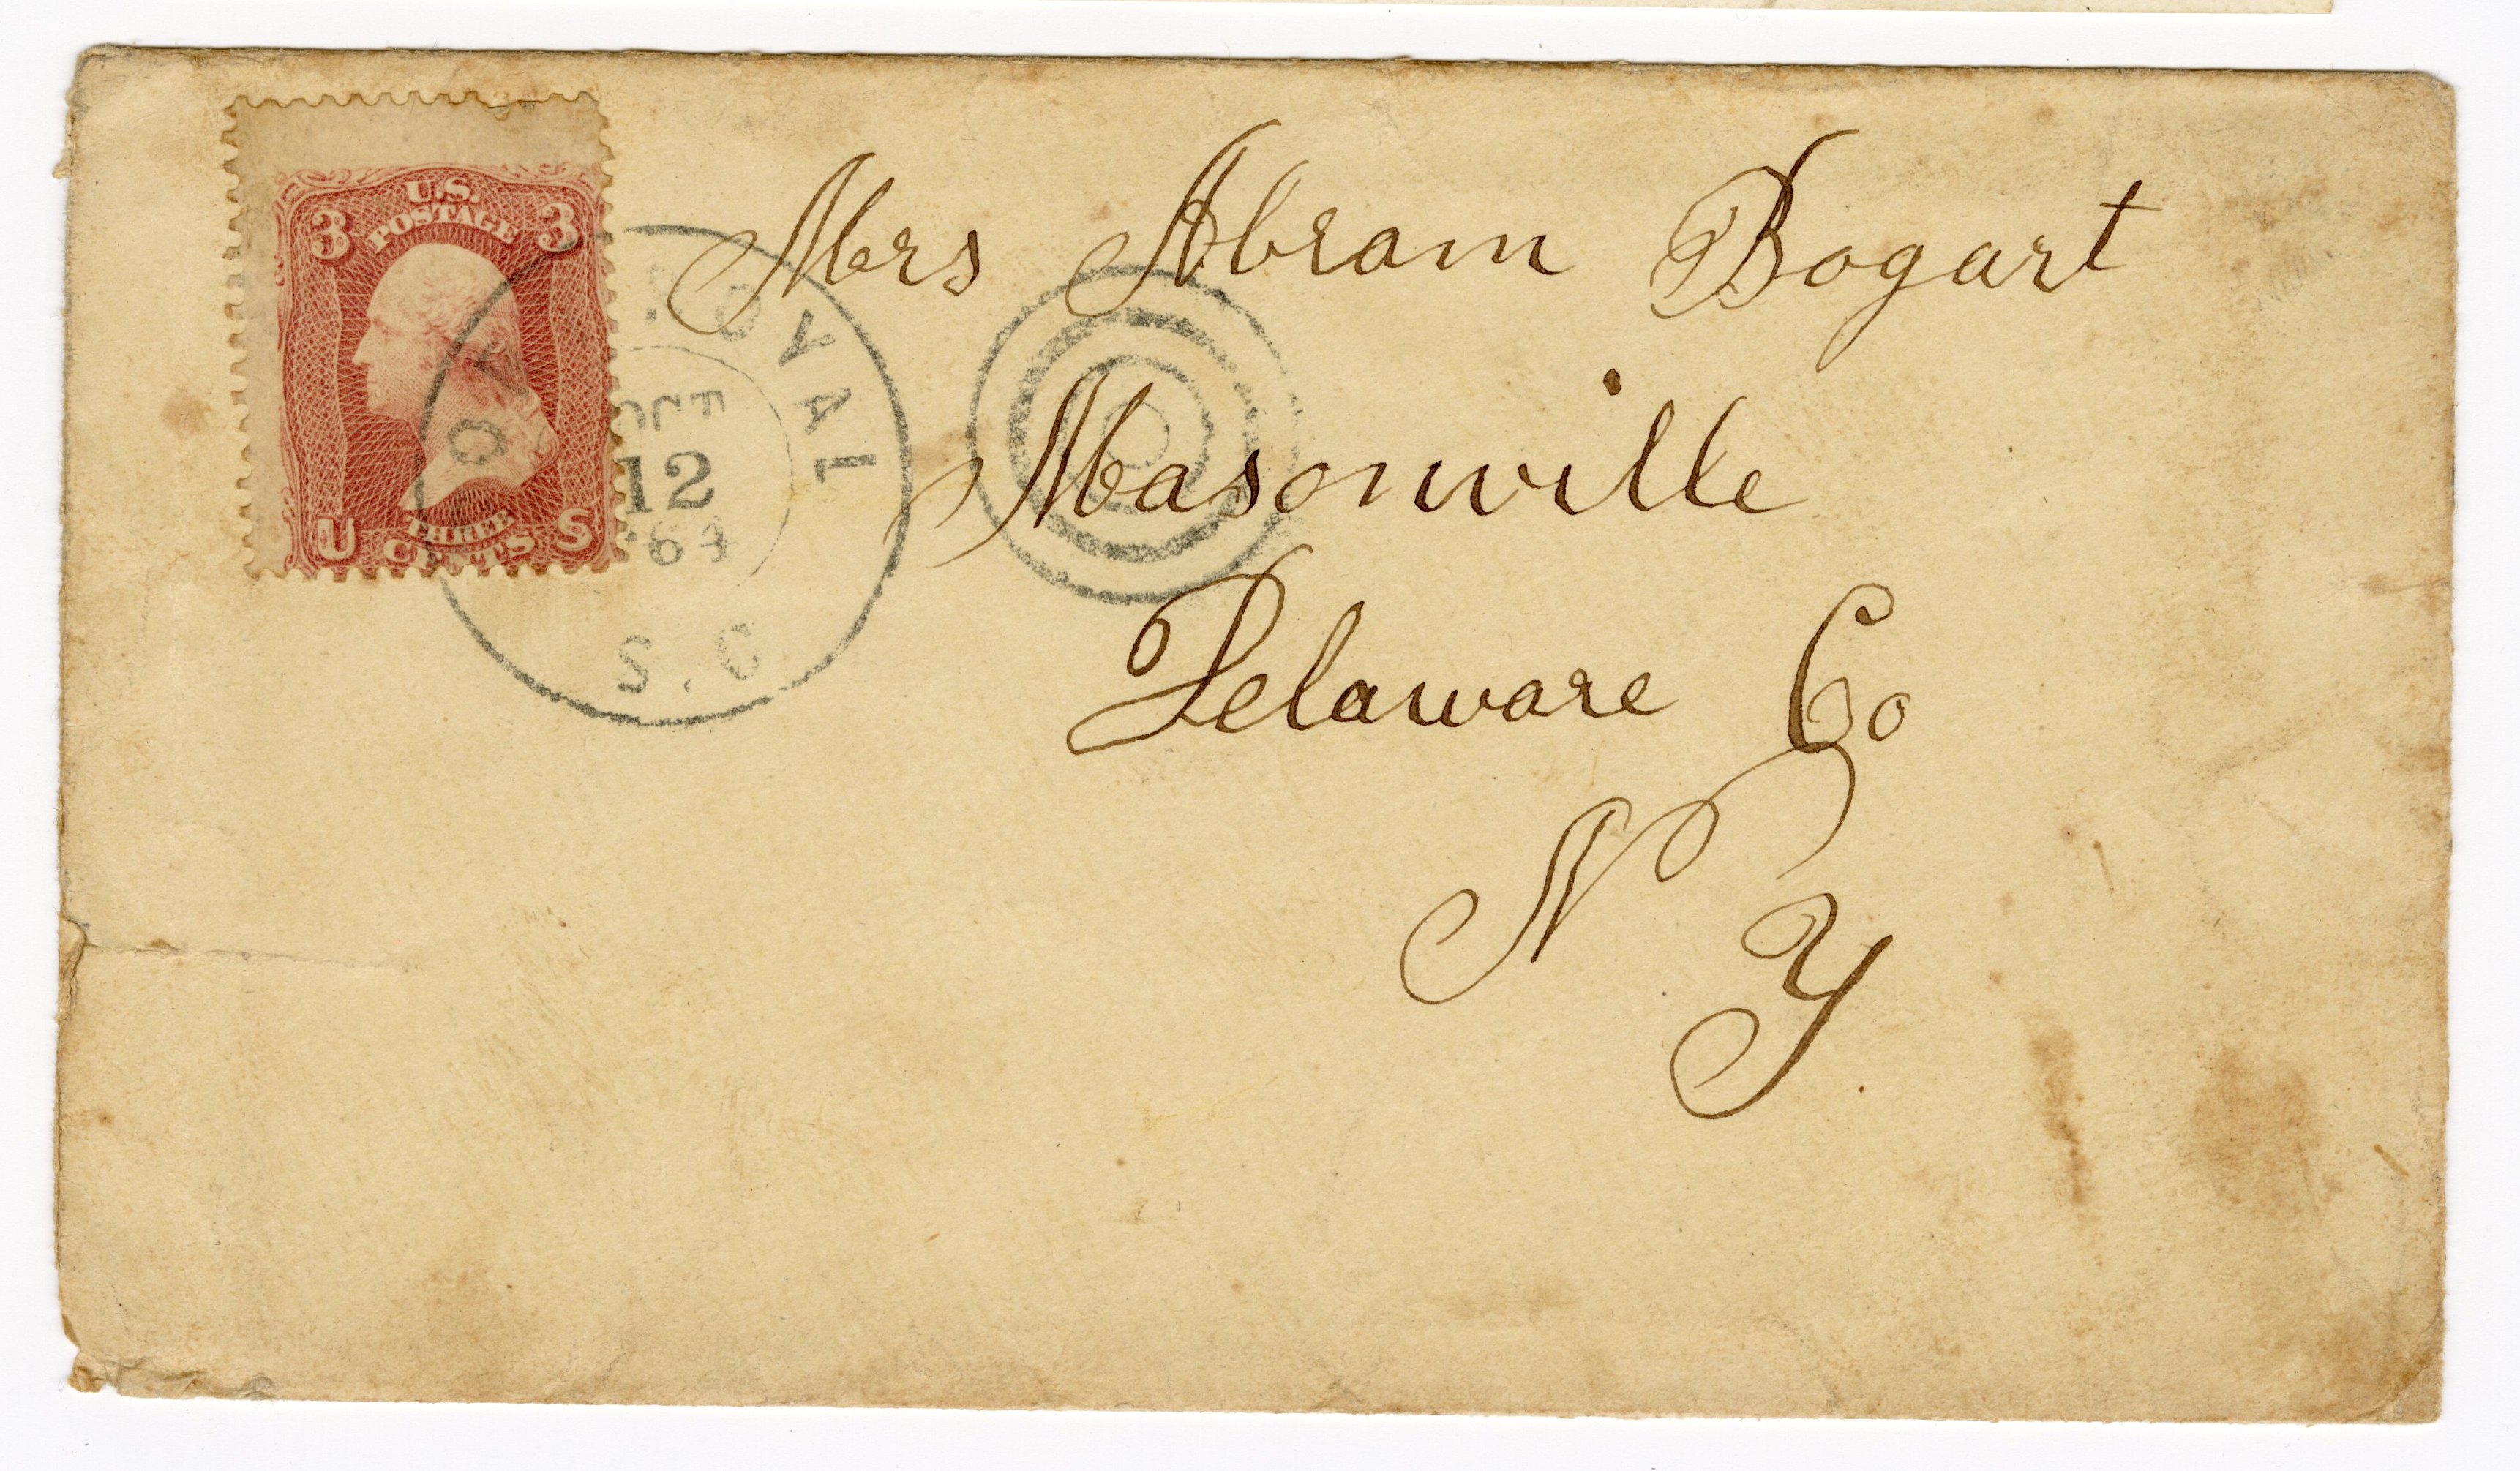 U.S.
POSTAGE
3 3
U S
THREE
CENTS
OCT
12
'64
S.C
Mrs Abram Bogart
Masonville
Delaware Co
N Y